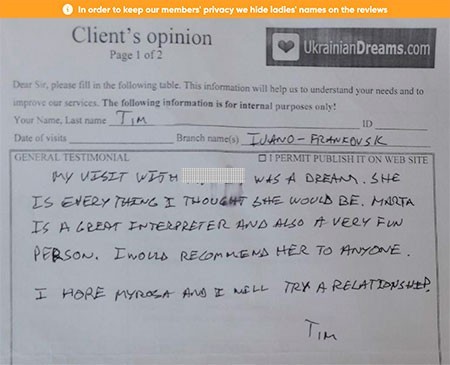 In order to keep our members' privacy we hide ladies' names on the reviews
Client's opinion
Page 1 of 2
UkrainianDreams.com
Dear Sir, please fill in the following table. This information will help us to understand your needs and to
improve our services. The following information is for internal purposes only!
Your Name, Last name TIM ID
Date of visits Branch name(s) IVANO-FRANKOVSK
GENERAL TESTIMONIAL I PERMIT PUBLISH IT ON WEB SITE
MY VISIT WITH WAS A DREAM. SHE
IS EVERYTHING I THOUGHT SHE WOULD BE. MARTA
IS A GREAT INTERPRETER AND ALSO A VERY FUN
PERSON. I WOULD RECOMMEND HER TO ANYONE.
I HOPE MYROSA AND I WILL TRY A RELATIONSHIP.
TIM